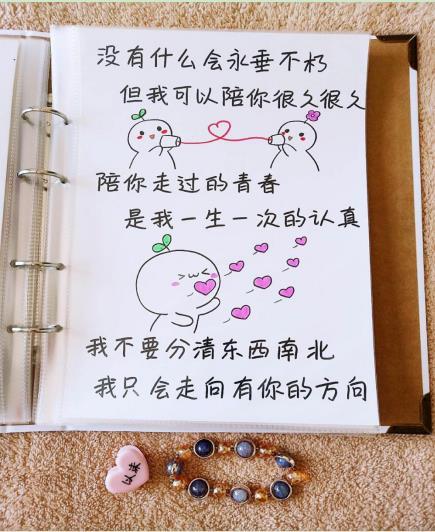 没有什么会永垂不朽
但我可以陪你很久很久
陪你走过的青春
是我一生一次的认真
我不要分清东西南北
我只会走向有你的方向